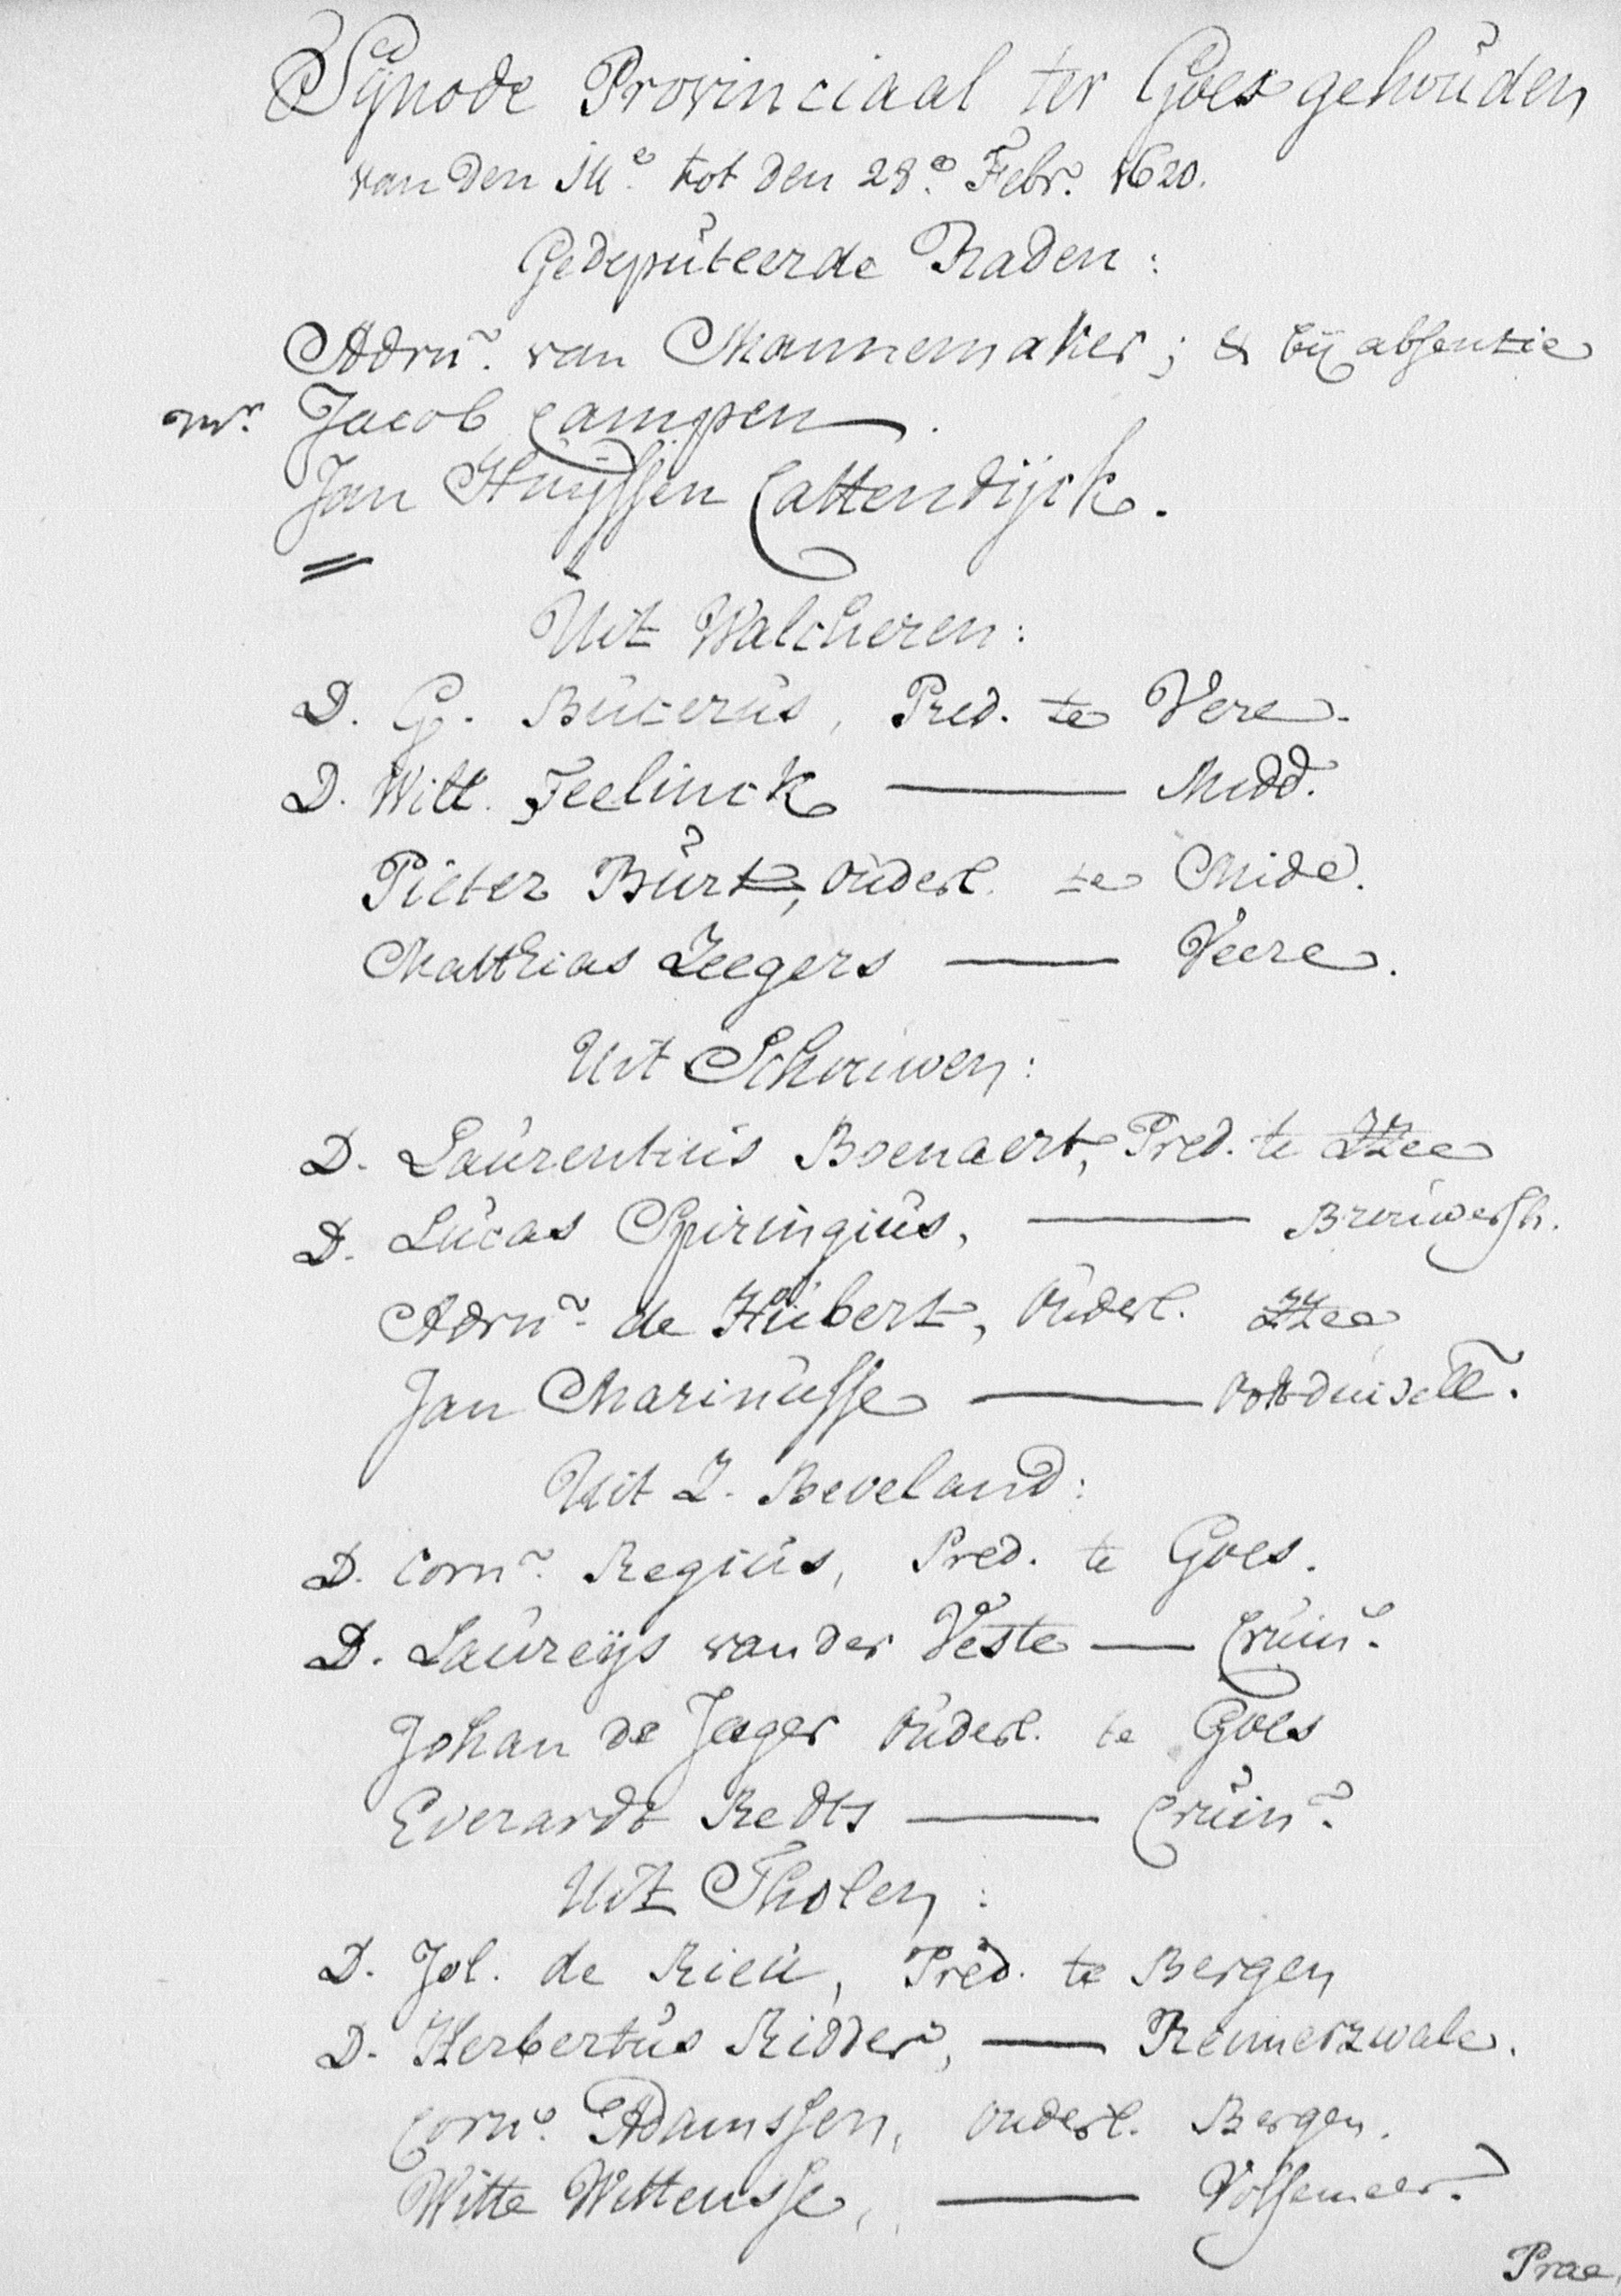 Synode Provinciaal ter Goes gehouden
van den 14e tot den 28e Febr. 1620.
Gedeputeerde Raden:
Adrn. van Mannemaker; & bij absentie
Mr. Jacob Campen.
Jan Huijssen Cattendijck.
Uit Walcheren:
D. G. Bucerus, Pred. te Vere.
D. Will. Teelinck — Midd.
Pieter Burt, Ouderl. te Midd.
Matthias Zeegers — Veere.
Uit Schouwen:
D. Laurentius Boenaert, Pred. te ZZee
D. Lucas Spiringius, — Brouwersh.
Adrn. de Hubert, Ouderl. ZZee
Jan Marinusse —
Uit Z. Beveland:
D. Corn. Regius, Pred. te Goes.
D. Laureijs van der Veste — Cruin.
Johan de Jager Ouderl. te Goes
Everardt Redts — Cruin.
Uit Tholen:
D. Jol. de Rieu, Pred. te Bergen
D. Herbertus Ridder, — Reimerzwale.
Corn. Adamssen, Ouderl. Bergen.
Witte Wittensse, — Vossemeer.
Prae